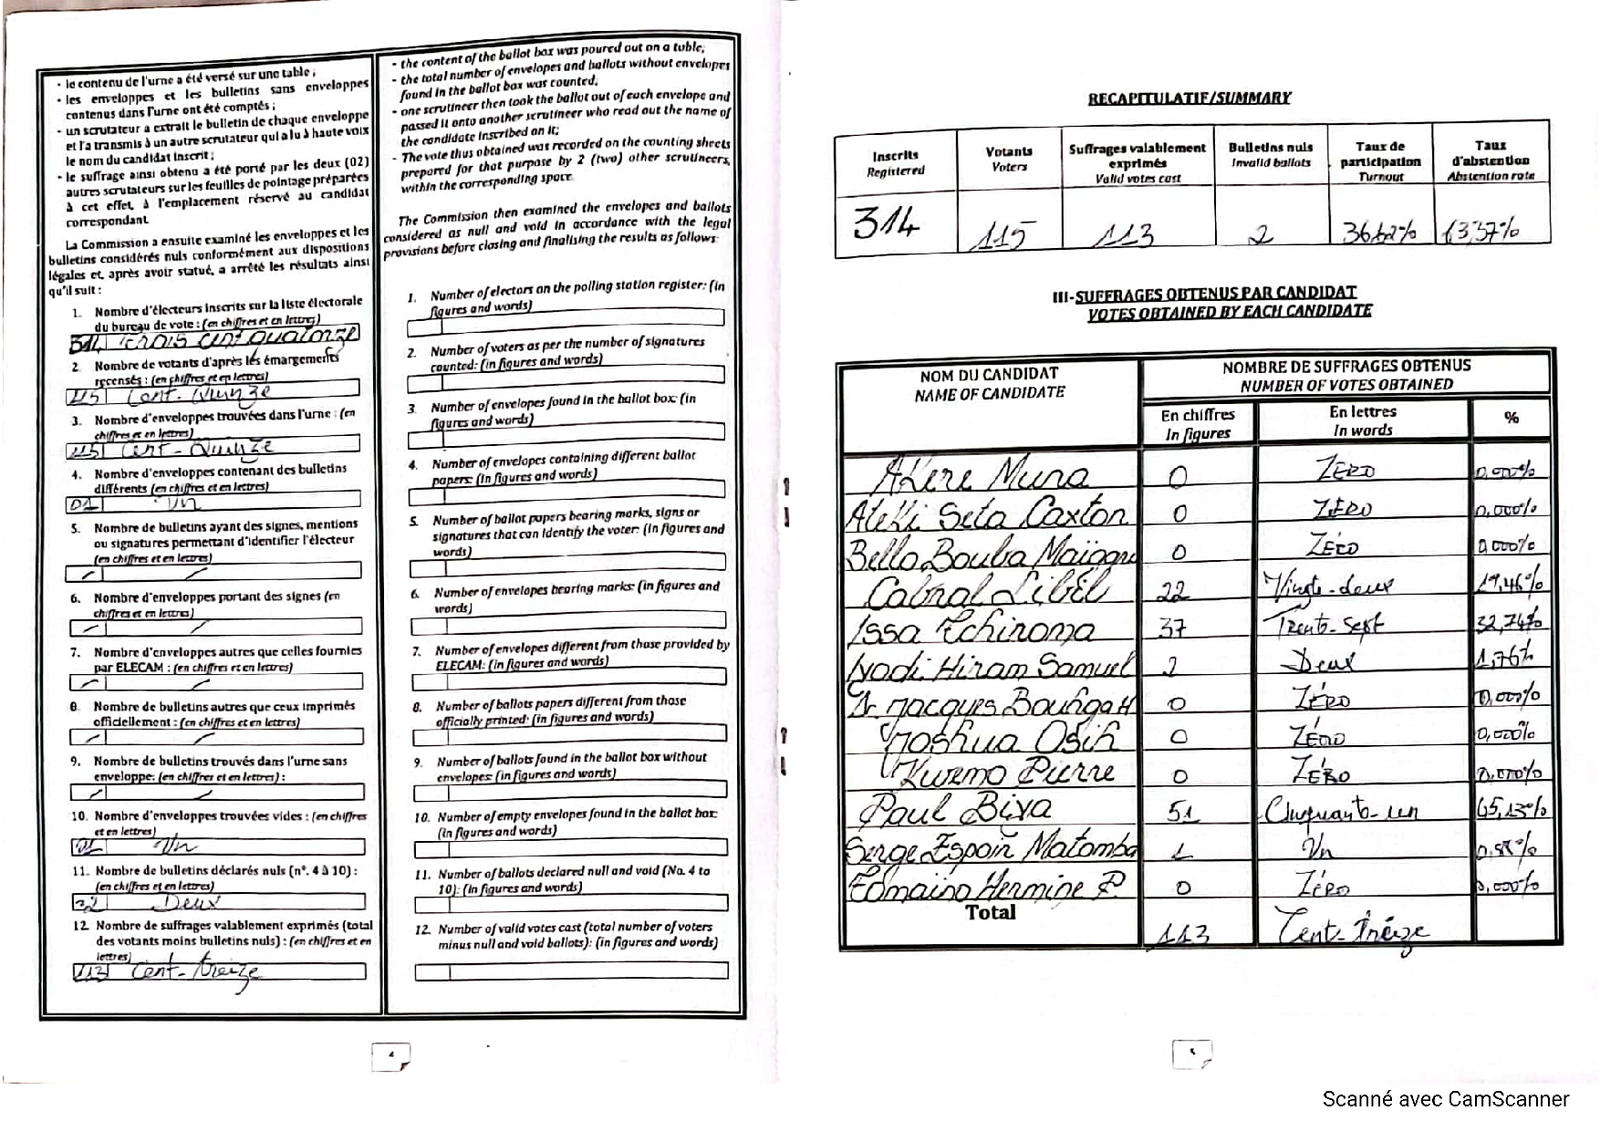 - le contenu de l'urne a été versé sur une table ;
- les enveloppes et les bulletins sans enveloppes
contenus dans l'urne ont été comptés ;
- un scrutateur a extrait le bulletin de chaque enveloppe
et l'a transmis à un autre scrutateur qui a lu à haute voix
le nom du candidat inscrit ;
- le suffrage ainsi obtenu a été porté par les deux (02)
autres scrutateurs sur les feuilles de pointage préparées
à cet effet, à l'emplacement réservé au candidat
correspondant.
La Commission a ensuite examiné les enveloppes et les
bulletins considérés nuls conformément aux dispositions
légales et, après avoir statué, a arrêté les résultats ainsi
qu'il suit :
1. Nombre d'électeurs inscrits sur la liste électorale
du bureau de vote : (en chiffres et en lettres)
314 trois cent quatorze
2. Nombre de votants d'après les émargements
recensés : (en chiffres et en lettres)
115 Cent-Quinze
3. Nombre d'enveloppes trouvées dans l'urne : (en
chiffres et en lettres)
115 Cent-Quinze
4. Nombre d'enveloppes contenant des bulletins
différents (en chiffres et en lettres)
01 Un
5. Nombre de bulletins ayant des signes, mentions
ou signatures permettant d'identifier l'électeur
(en chiffres et en lettres)
/ /
6. Nombre d'enveloppes portant des signes (en
chiffres et en lettres)
/ /
7. Nombre d'enveloppes autres que celles fournies
par ELECAM : (en chiffres et en lettres)
/ /
8. Nombre de bulletins autres que ceux imprimés
officiellement : (en chiffres et en lettres)
/ /
9. Nombre de bulletins trouvés dans l'urne sans
enveloppe: (en chiffres et en lettres) :
/ /
10. Nombre d'enveloppes trouvées vides : (en chiffres
et en lettres)
01 Un
11. Nombre de bulletins déclarés nuls (n°. 4 à 10) :
(en chiffres et en lettres)
Deux
12. Nombre de suffrages valablement exprimés (total
des votants moins bulletins nuls) : (en chiffres et en
lettres)
113 Cent-treize
- the content of the ballot box was poured out on a table;
- the total number of envelopes and ballots without envelopes
found in the ballot box was counted,
- one scrutineer then took the ballot out of each envelope and
passed it onto another scrutineer who read out the name of
the candidate inscribed on it;
- The vote thus obtained was recorded on the counting sheets
prepared for that purpose by 2 (two) other scrutineers,
within the corresponding space.
The Commission then examined the envelopes and ballots
considered as null and void in accordance with the legal
provisions before closing and finalising the results as follows:
1. Number of electors on the polling station register: (in
figures and words)
2. Number of voters as per the number of signatures
counted: (in figures and words)
3. Number of envelopes found in the ballot box: (in
figures and words)
4. Number of envelopes containing different ballot
papers: (in figures and words)
5. Number of ballot papers bearing marks, signs or
signatures that can identify the voter: (in figures and
words)
6. Number of envelopes bearing marks: (in figures and
words)
7. Number of envelopes different from those provided by
ELECAM: (in figures and words)
8. Number of ballots papers different from those
officially printed: (in figures and words)
9. Number of ballots found in the ballot box without
envelopes: (in figures and words)
10. Number of empty envelopes found in the ballot box:
(in figures and words)
11. Number of ballots declared null and void (No. 4 to
10): (in figures and words)
12. Number of valid votes cast (total number of voters
minus null and void ballots): (in figures and words)
4
RECAPITULATIF/SUMMARY
Inscrits Registered Votants Voters Suffrages valablement exprimés Valid votes cast Bulletins nuls Invalid ballots Taux de participation Turnout Taux d'abstention Abstention rate
314 115 113 2 36,62% 63,37%
III-SUFFRAGES OBTENUS PAR CANDIDAT
VOTES OBTAINED BY EACH CANDIDATE
NOM DU CANDIDAT NOMBRE DE SUFFRAGES OBTENUS
NAME OF CANDIDATE NUMBER OF VOTES OBTAINED
En chiffres En lettres %
In figures In words
Akere Muna 0 ZERO 0,000%
Ateki Seta Caxton 0 ZÉRO 0,000%
Bello Bouba Maïgari 0 ZÉRO 0,000%
Cabral Libii 22 Vingt-deux 19,46%
Issa Tchiroma 37 Trente-Sept 32,74%
Iyodi Hiram Samuel 2 Deux 1,76%
Jacques Bougha H 0 ZÉRO 0,000%
Joshua Osih 0 ZÉRO 0,000%
Kwemo Pierre 0 ZÉRO 0,000%
Paul Biya 51 Cinquante-un 45,13%
Serge Espoir Matomba 1 Un 0,88%
Tomaino Hermine P. 0 Zéro 0,000%
Total 113 Cent-treize
5
Scanné avec CamScanner